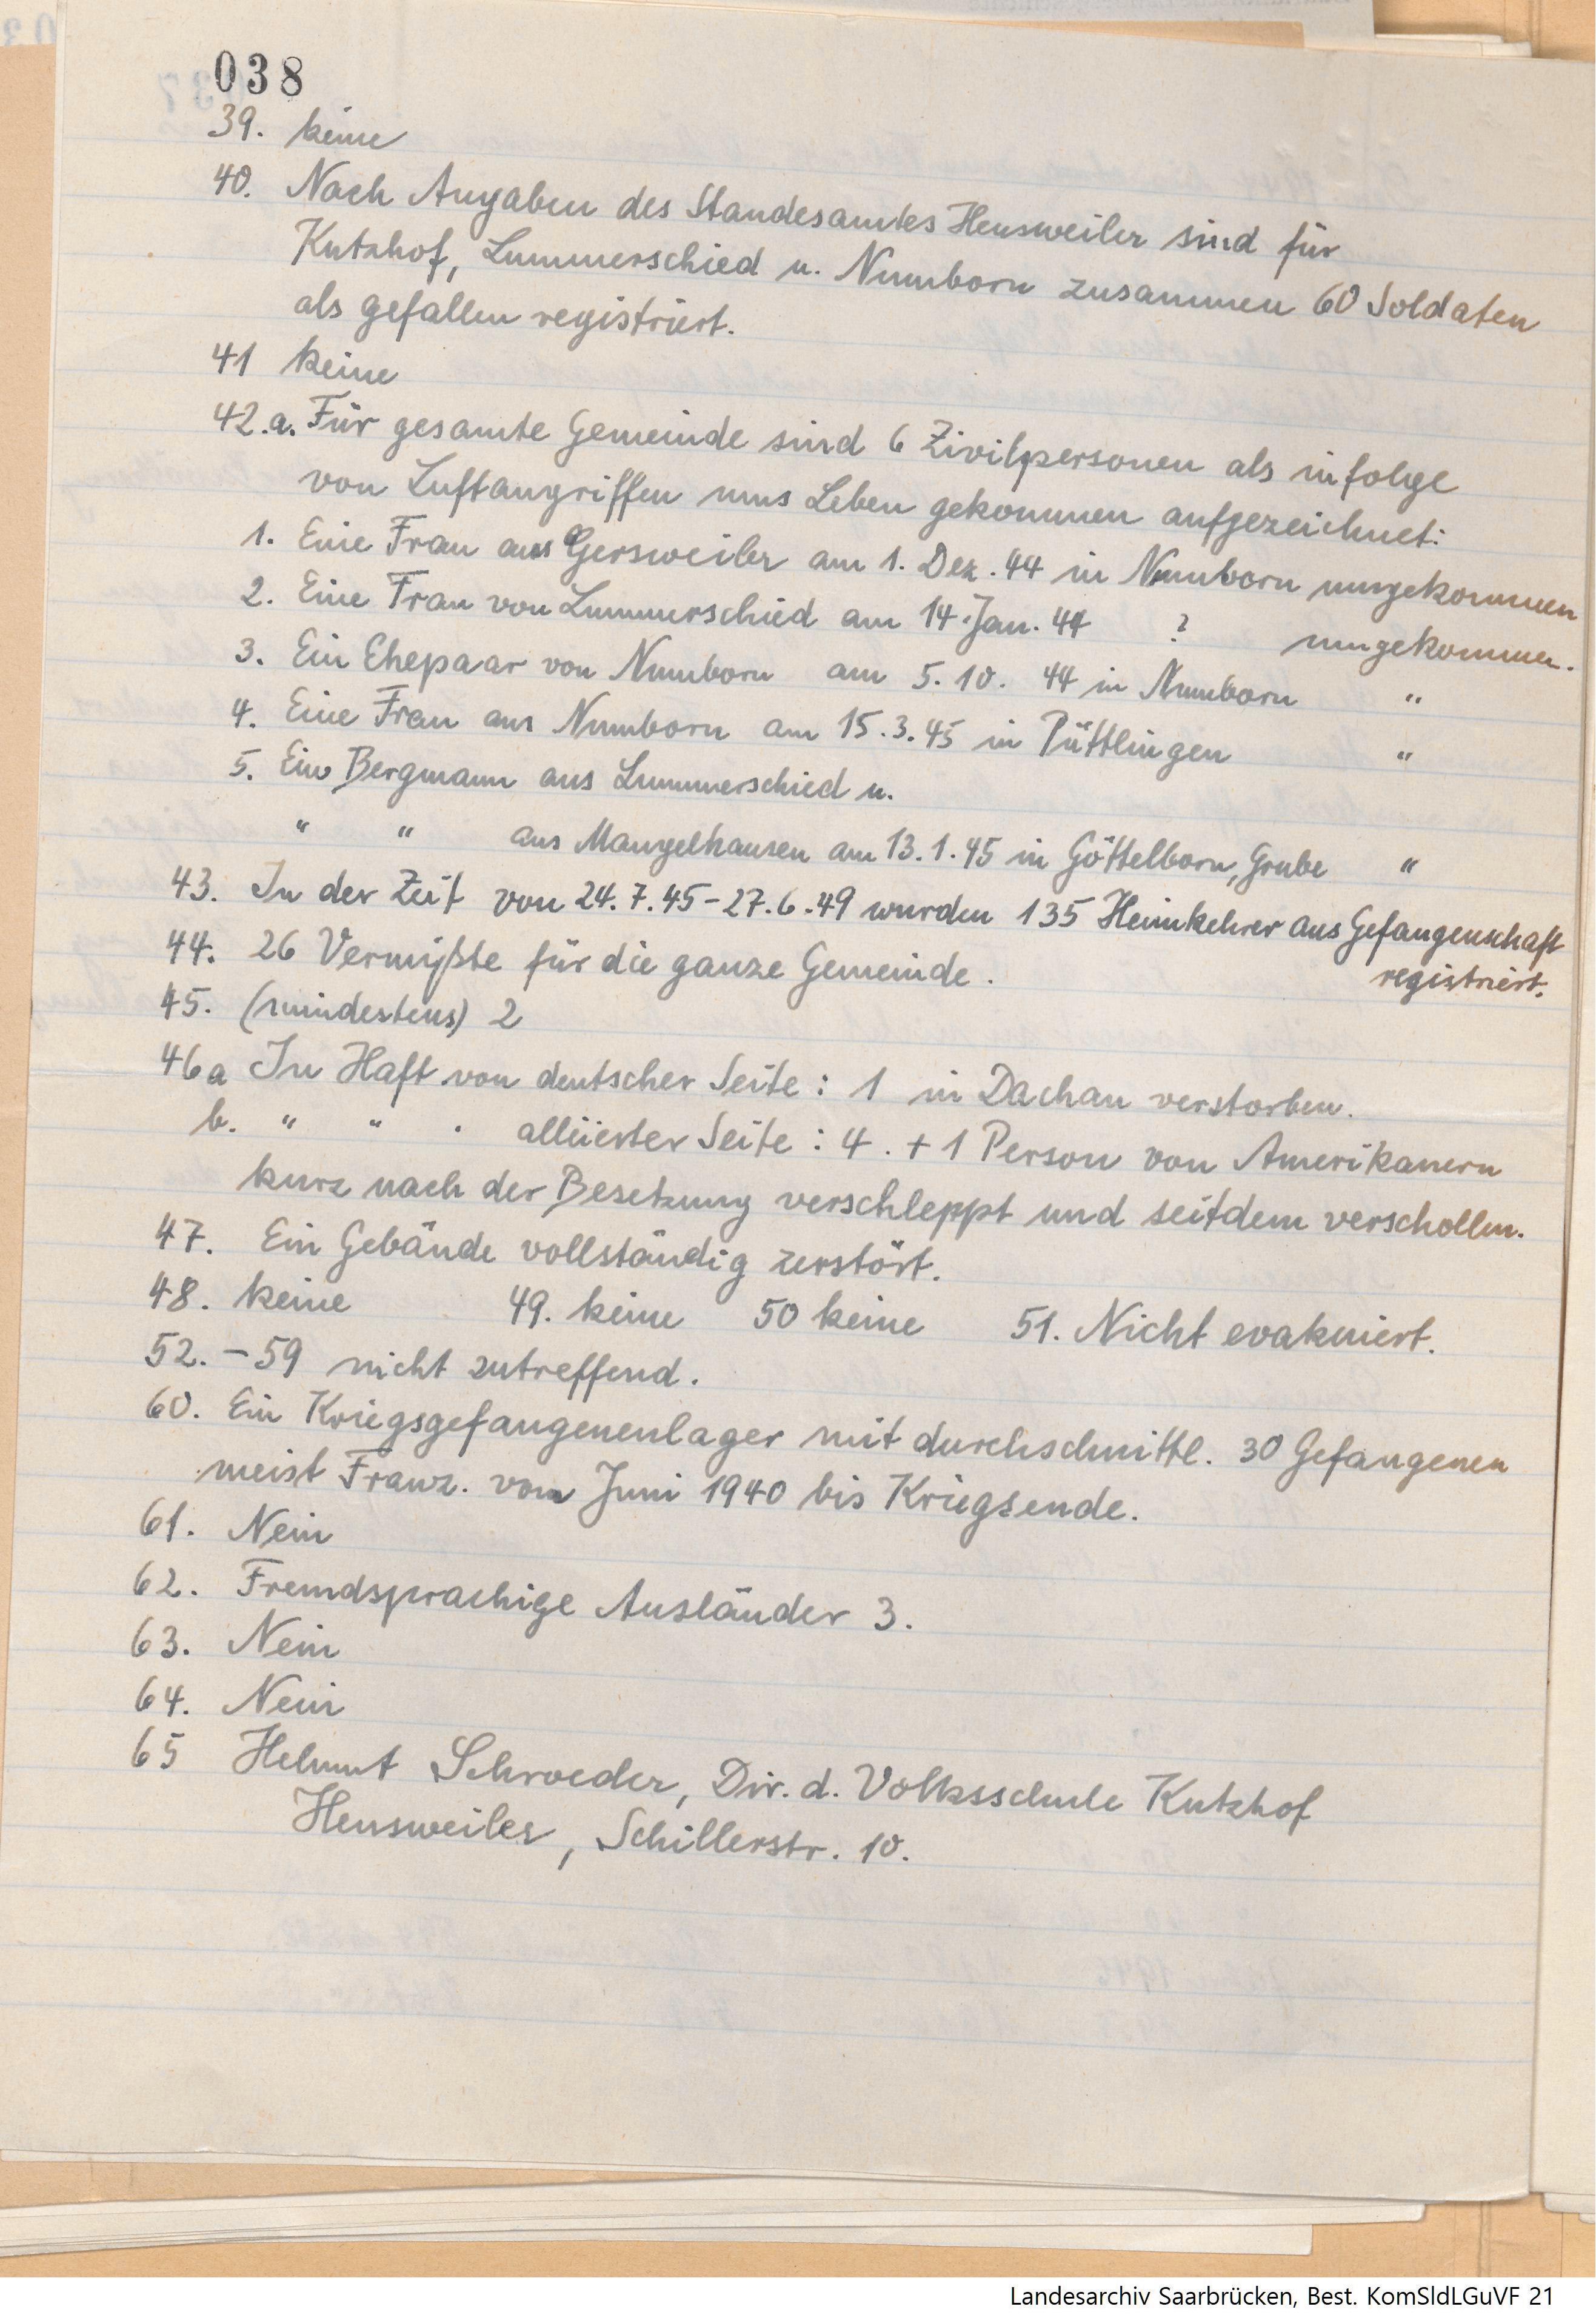 038
39. keine
40. Nach Angaben des Standesamtes Heusweiler sind für
Kutzhof, Lummerschied u. Numborn zusammen 60 Soldaten
als gefallen registriert.
41 keine
42.a. Für gesamte Gemeinde sind 6 Zivilpersonen als infolge
von Luftangriffen ums Leben gekommen aufgezeichnet:
1. Eine Frau aus Gersweiler am 1. Dez. 44 in Numborn umgekommen
2. Eine Frau von Lummerschied am 14. Jan. 44 ? umgekommen.
3. Ein Ehepaar von Numborn am 5. 10. 44 in Numborn "
4. Eine Frau aus Numborn am 15.3.45 in Püttlingen "
5. Ein Bergmann aus Lummerschied u.
" " aus Mangelhausen am 13.1.45 in Göttelborn, Grube "
43. In der Zeit von 24.7.45-27.6.49 wurden 135 Heimkehrer aus Gefangenschaft
registriert.
44. 26 Vermißte für die ganze Gemeinde.
45. (mindestens) 2
46a In Haft von deutscher Seite: 1 in Dachau verstorben.
b. " " " alliierter Seite: 4. + 1 Person von Amerikanern
kurz nach der Besetzung verschleppt und seitdem verschollen.
47. Ein Gebäude vollständig zerstört.
48. keine 49. keine 50 keine 51. Nicht evakuiert.
52. - 59 nicht zutreffend.
60. Ein Kriegsgefangenenlager mit durchschnittl. 30 Gefangenen
meist Franz. vom Juni 1940 bis Kriegsende.
61. Nein
62. Fremdsprachige Ausländer 3.
63. Nein
64. Nein
65 Helmut Schroeder, Dir. d. Volksschule Kutzhof
Heusweiler, Schillerstr. 10.
Landesarchiv Saarbrücken, Best. KomSldLGuVF 21